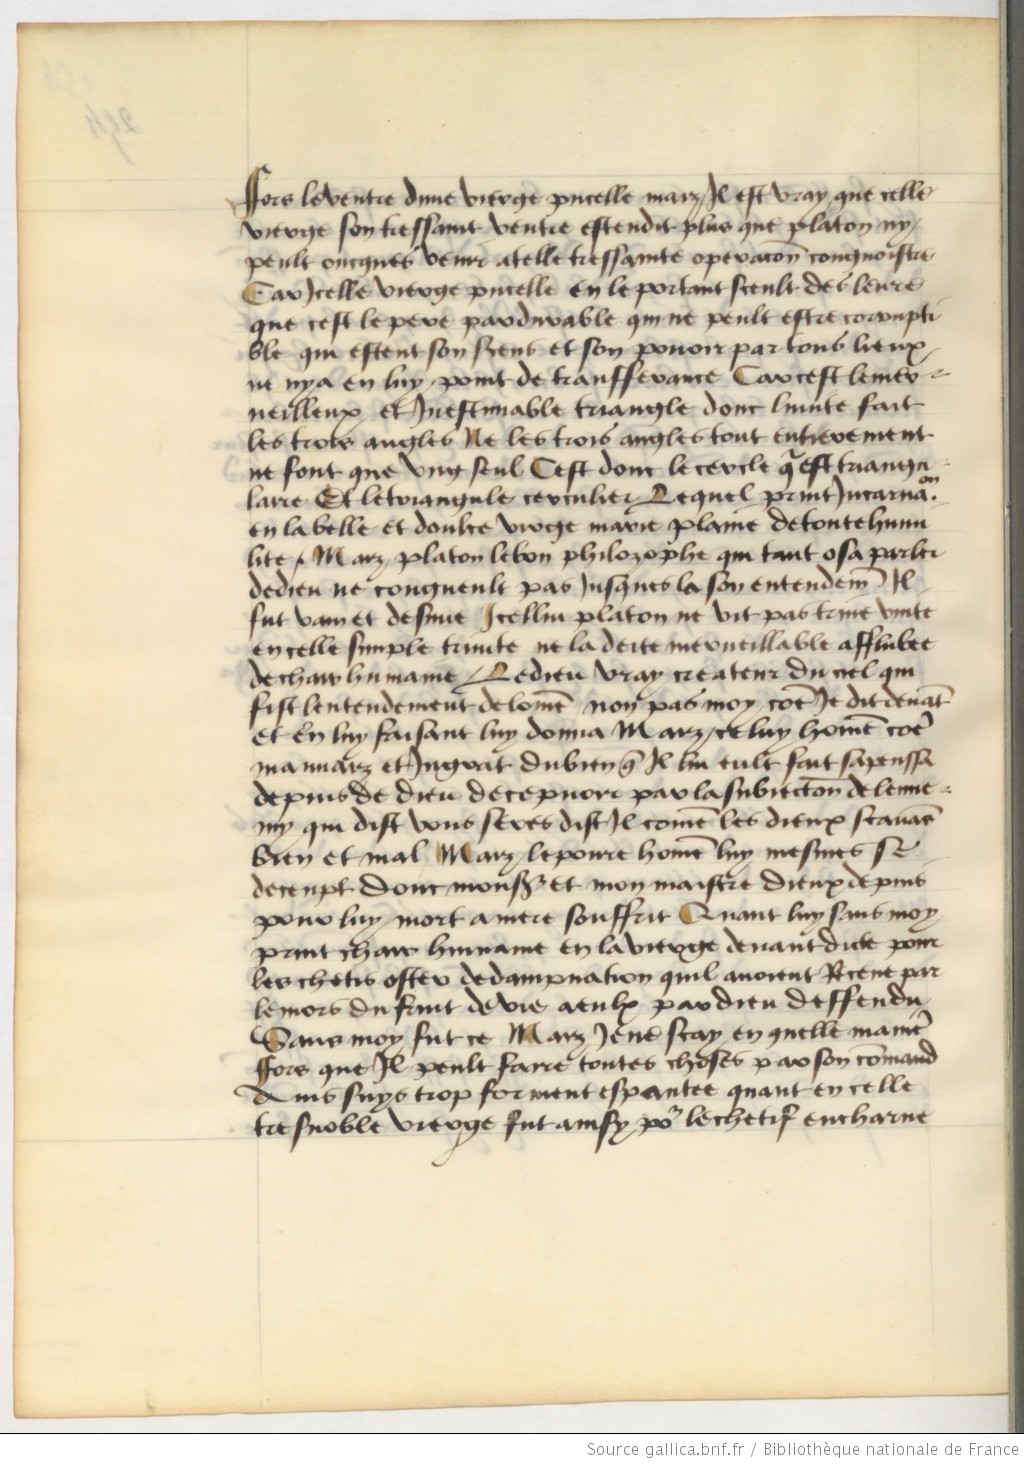 Fors le ventre dune vierge pucelle marz Il est vray que celle
vierge son tressaint ventre estendit plus que platon ny
peult oncques venir a telle tressainte operacōn congnoistre
Car Icelle vierge pucelle en le portant sceult des leure
que cest le pere pardurable qui ne peult estre corrupti
ble qui estent son sens et son povoir par tous lieux
ne nya en luy point de transferance Car cest le mer
veilleux et Inestimable triangle donc lunite fait
les trois angles Ne les trois angles tout entierement
ne font que ung seul Cest donc le cercle q̄ est triangu
laire Et le triangule cerculier Lequel print Incarnaōn
en la belle et doulce vierge marie plaine de toute humi
lite Marz platon le bon philozophe qui tant osa parler
de dieu ne congneult pas Jusques la son entendem̄ Il
fut vain et desine Icellui platon ne vit pas trine unite
en celle simple trinite ne la deite merveillable affubee
de chair humaine Le dieu vray createur du ciel qui
fist lentendement de lom̄e non pas moy cōe Je dit devāt
et en luy faisant luy donna Marz celuy hom̄e cōe
mauvarz et Ingrat du bien q̄ Il lui eult fait sapenssa
depuis de dieu decepvoir par la subiectōn de lenne
my qui dist vous seres dist Il com̄e les dieux scavās
bien et mal Marz le povre hom̄e luy mesmes se
deceupt Donc mons et mon maistre dieux depuis
pour luy mort amere souffrit Quant luy sans moy
print chair humaine en la vierge devant dicte pour
les chetis oster de dampnation quil avoient Recene par
le mors du fruit de vie a eulx par dieu deffendu
Sans moy fut ce Marz Je ne scay en quelle manie
Fors que Il peult faire toutes choses par son cōmand
Ains suys trop forment espantee quant en celle
tres noble vierge fut ainsy po le chetif encharne
Source gallica.bnf.fr / Bibliothèque nationale de France